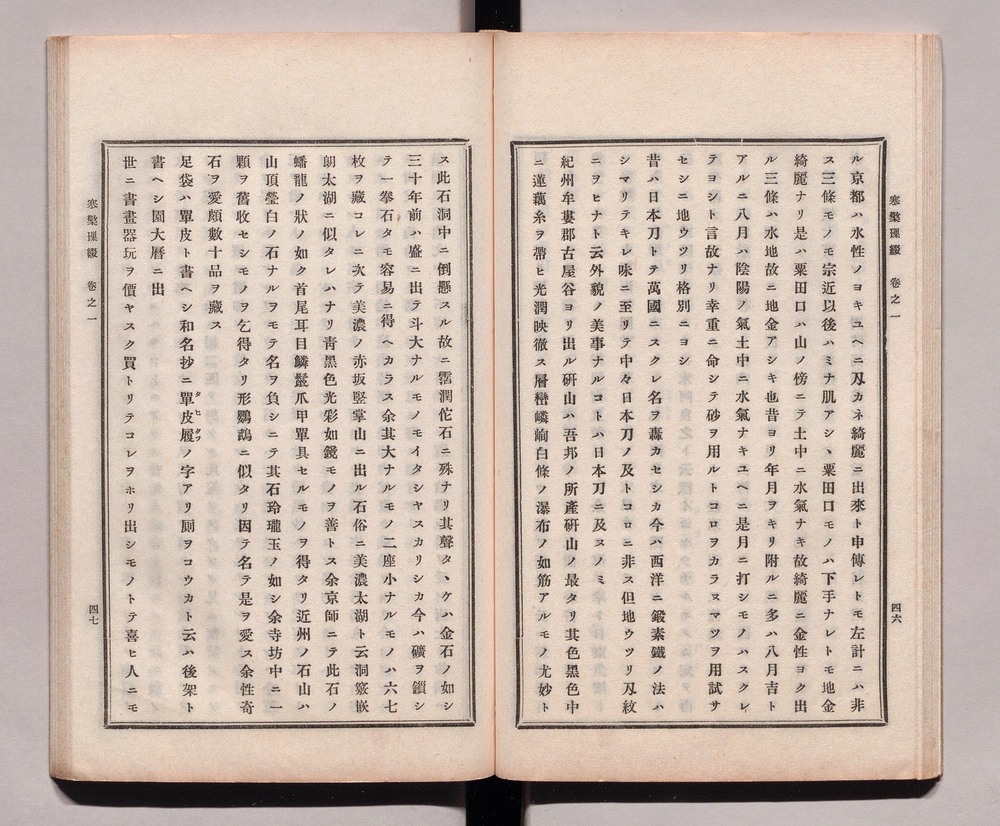 寒檠璅綴 卷之一
四六
ル京都ハ水性ノヨキユヘニ刄カネ綺麗ニ出來ト申傳レトモ左計ニハ非
ス三條モノモ宗近以後ハミナ肌アシヽ粟田口モノハ下手ナレトモ地金
綺麗ナリ是ハ粟田口ハ山ノ傍ニテ土中ニ水氣ナキ故綺麗ニ金性ヨク出
ル三條ハ水地故ニ地金アシキ也昔ヨリ年月ヲキリ附ルニ多ハ八月吉ト
アルニ八月ハ陰陽ノ氣土中ニ水氣ナキユヘニ是月ニ打シモノハスクレ
テヨシト言故ナリ幸重ニ命シテ砂ヲ用ルトコロヲカラスマツヲ用試サ
セシニ地ウツリ格別ニヨシ
昔ハ日本刀トテ萬國ニスクレ名ヲ轟カセシカ今ハ西洋ニ鍛素鐵ノ法ハ
シマリテキレ味ニ至リテ中々日本刀ノ及トコロニ非ス但地ウツリ刄紋
ニヲヒナト云外貌ノ美事ナルコトハ日本刀ニ及スノミ
紀州牟婁郡古屋谷ヨリ出ル硏山ハ吾邦ノ所產硏山ノ最タリ其色黑色中
ニ蓮藕糸ヲ帶ヒ光潤映徹ス層巒嶙峋白條ノ瀑布ノ如筋アルモノ尤妙ト
ス此石洞中ニ倒懸スル故ニ霑潤佗石ニ殊ナリ其聲タヽケハ金石ノ如シ
三十年前ハ盛ニ出テ斗大ナルモノモイタシヤスカリシカ今ハ礦ヲ鎖シ
テ一拳石タモ容易ニ得ヘカラス余其大ナルモノ二座小ナルモノハ六七
枚ヲ藏コレニ次テ美濃ノ赤坂竪掌山ニ出ル石俗ニ美濃太湖ト云洞窾嵌
朗太湖ニ似タレハナリ靑黑色光彩如鏡モノヲ善トス余京師ニテ此石ノ
蟠龍ノ狀ノ如ク首尾耳目鱗鬣爪甲單具セルモノヲ得タリ近州ノ石山ハ
山頂瑩白ノ石ナルヲモテ名ヲ負シニテ其石玲瓏玉ノ如シ余寺坊中ニ一
顆ヲ舊收セシモノヲ乞得タリ形鸚鵡ニ似タリ因テ名テ是ヲ愛ス余性奇
石ヲ愛頗數十品ヲ藏ス
足袋ハ單皮ト書ヘシ和名抄ニ單皮履タヒクツノ字アリ厠ヲコウカト云ハ後架ト
書ヘシ園大曆ニ出
世ニ書畫器玩ヲ價ヤスク買トリテコレヲホリ出シモノトテ喜ヒ人ニモ
寒檠璅綴 卷之一
四七